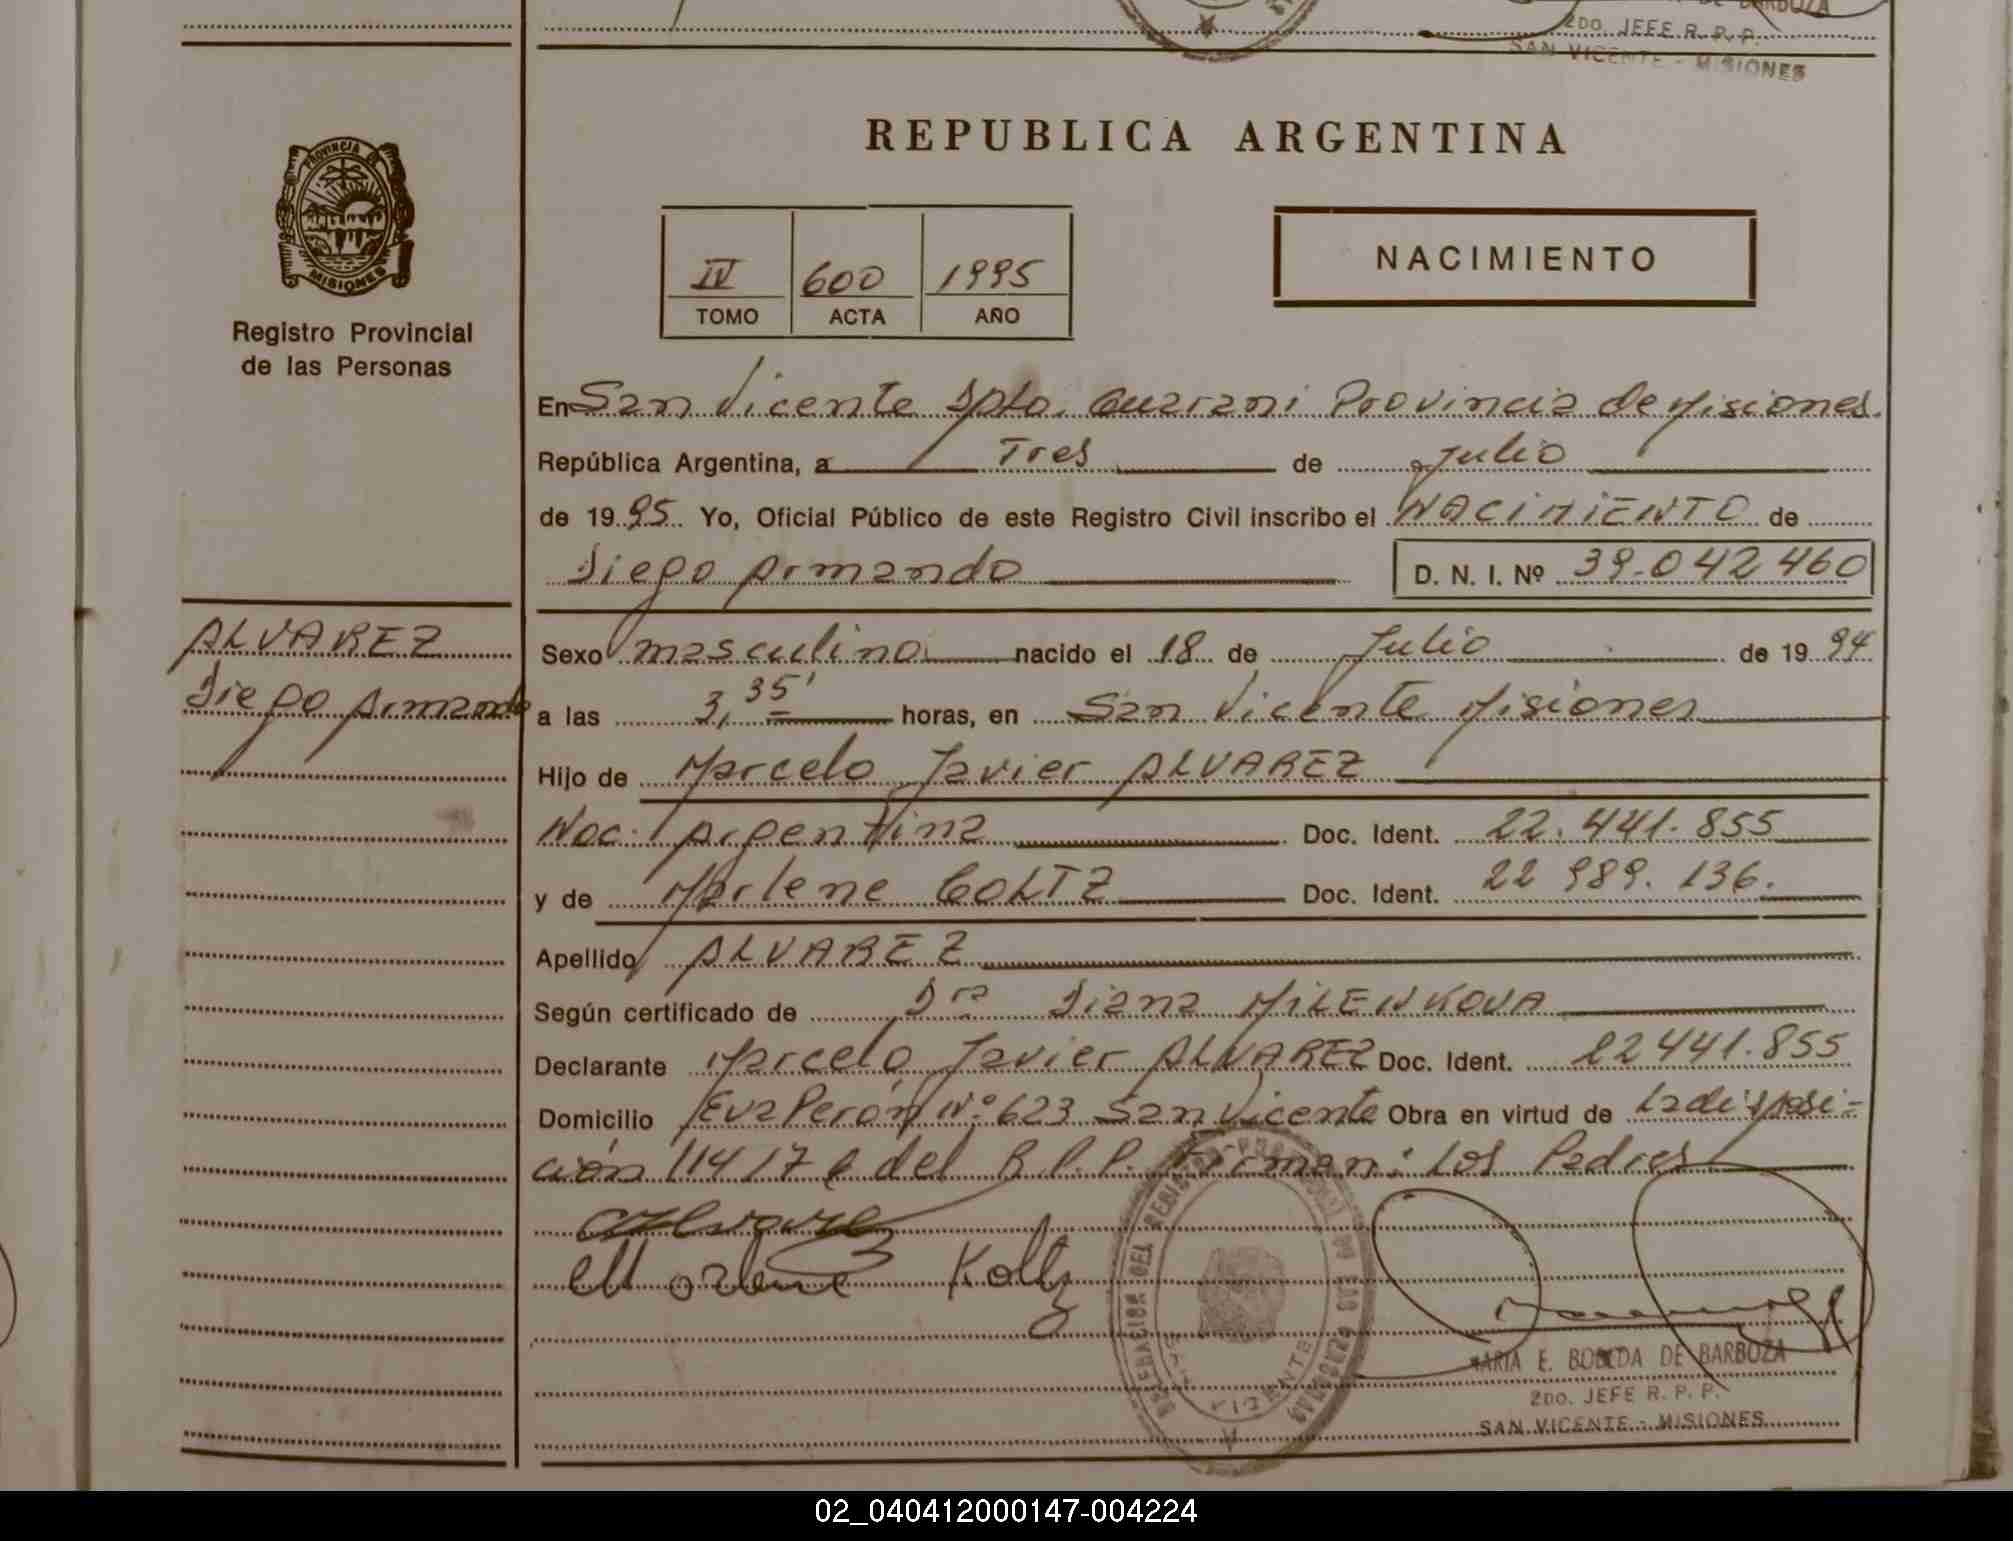 DE BARBOZA
2DO. JEFE R. P. P.
SAN VICENTE - MISIONES
PROVINCIA DE
MISIONES
Registro Provincial
de las Personas
REPUBLICA ARGENTINA
IV 600 1995
TOMO ACTA AÑO
NACIMIENTO
En San Vicente Dpto. Guarani Provincia de Misiones.
República Argentina, a Tres de Julio
de 1995 Yo, Oficial Público de este Registro Civil inscribo el NACIMIENTO de
Diego Armando D. N. I. Nº 39.042 460
ALVAREZ
Diego Armando
Sexo masculino nacido el 18 de Julio de 1994
a las 3,35' horas, en San Vicente Misiones
Hijo de Marcelo Javier ALVAREZ
Nac. Argentina Doc. Ident. 22.441.855
y de Marlene GOLTZ Doc. Ident. 22 989.136.
Apellido ALVAREZ
Según certificado de Dra Diana MILENKOVA
Declarante Marcelo Javier ALVAREZ Doc. Ident. 22441.855
Domicilio Eva Perón Nº 623 San Vicente Obra en virtud de La disposi-
ción 114/7 del R.P.P. Firman: Los Padres
Marlene Koltz
SAN VICENTE
MARIA E. BOBEDA DE BARBOZA
2DO. JEFE R. P. P.
SAN VICENTE - MISIONES
02_040412000147-004224